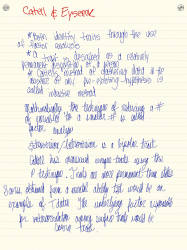 Cattell & Eysenck
*both identify traits through the use
of factor analysis
* a trait is described as a relatively
permanent disposition of a person
* Cattell's method of gathering data is for
absence of any pre-existing hypothesis is
called inductive method
*Mathematically the technique of reducing a #
of variables to a smaller # is called
factor analysis
extraversion/introversion is a bipolar trait
Cattell has measured unique traits using the
P technique, Traits are more permanent than states
Scores obtained from a mental ability test would be an
example of T data. The underlying factor responsible
for intercorrelation among surface traits would be
source traits